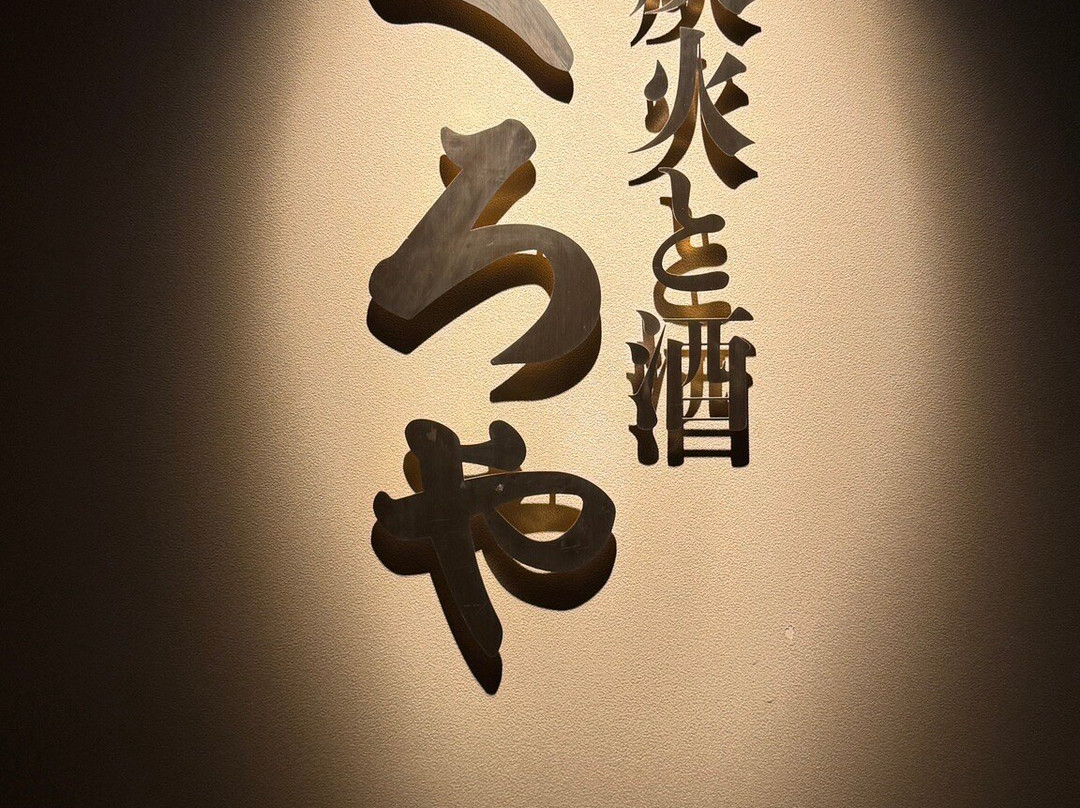 火と酒
ろや